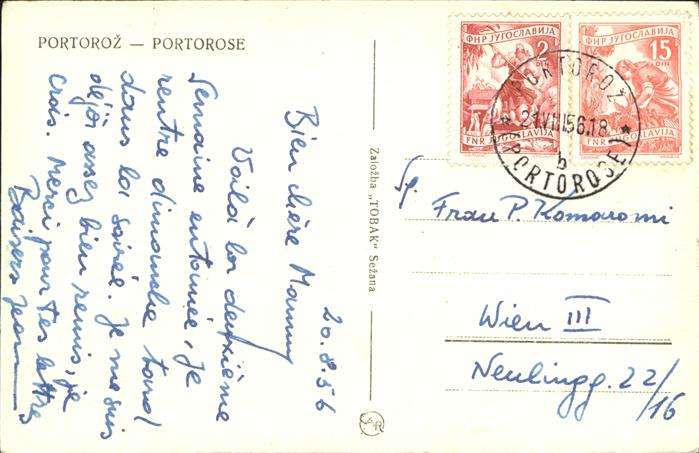 PORTOROŽ — PORTOROSE
20.8.56
Bien chère Mammy
Voilà la deuxième
Semaine entamée, je
rentre dimanche tard
dans la soirée. Je me suis
déjà assez bien remis, je
crois. Merci pour tes lettres
Baisers Jean
Založba „TOBAK“ Sežana
ФНР ЈУГОСЛАВИЈА
2
DIN
FNR JUGOSLAVIJA
ФНР ЈУГОСЛАВИЈА
15
DIN
FNR JUGOSLAVIJA
PORTOROŽ
21.VIII.56.18
b
PORTOROSE
Frau P. Komaromi
Wien III
Neulingg. 22/16